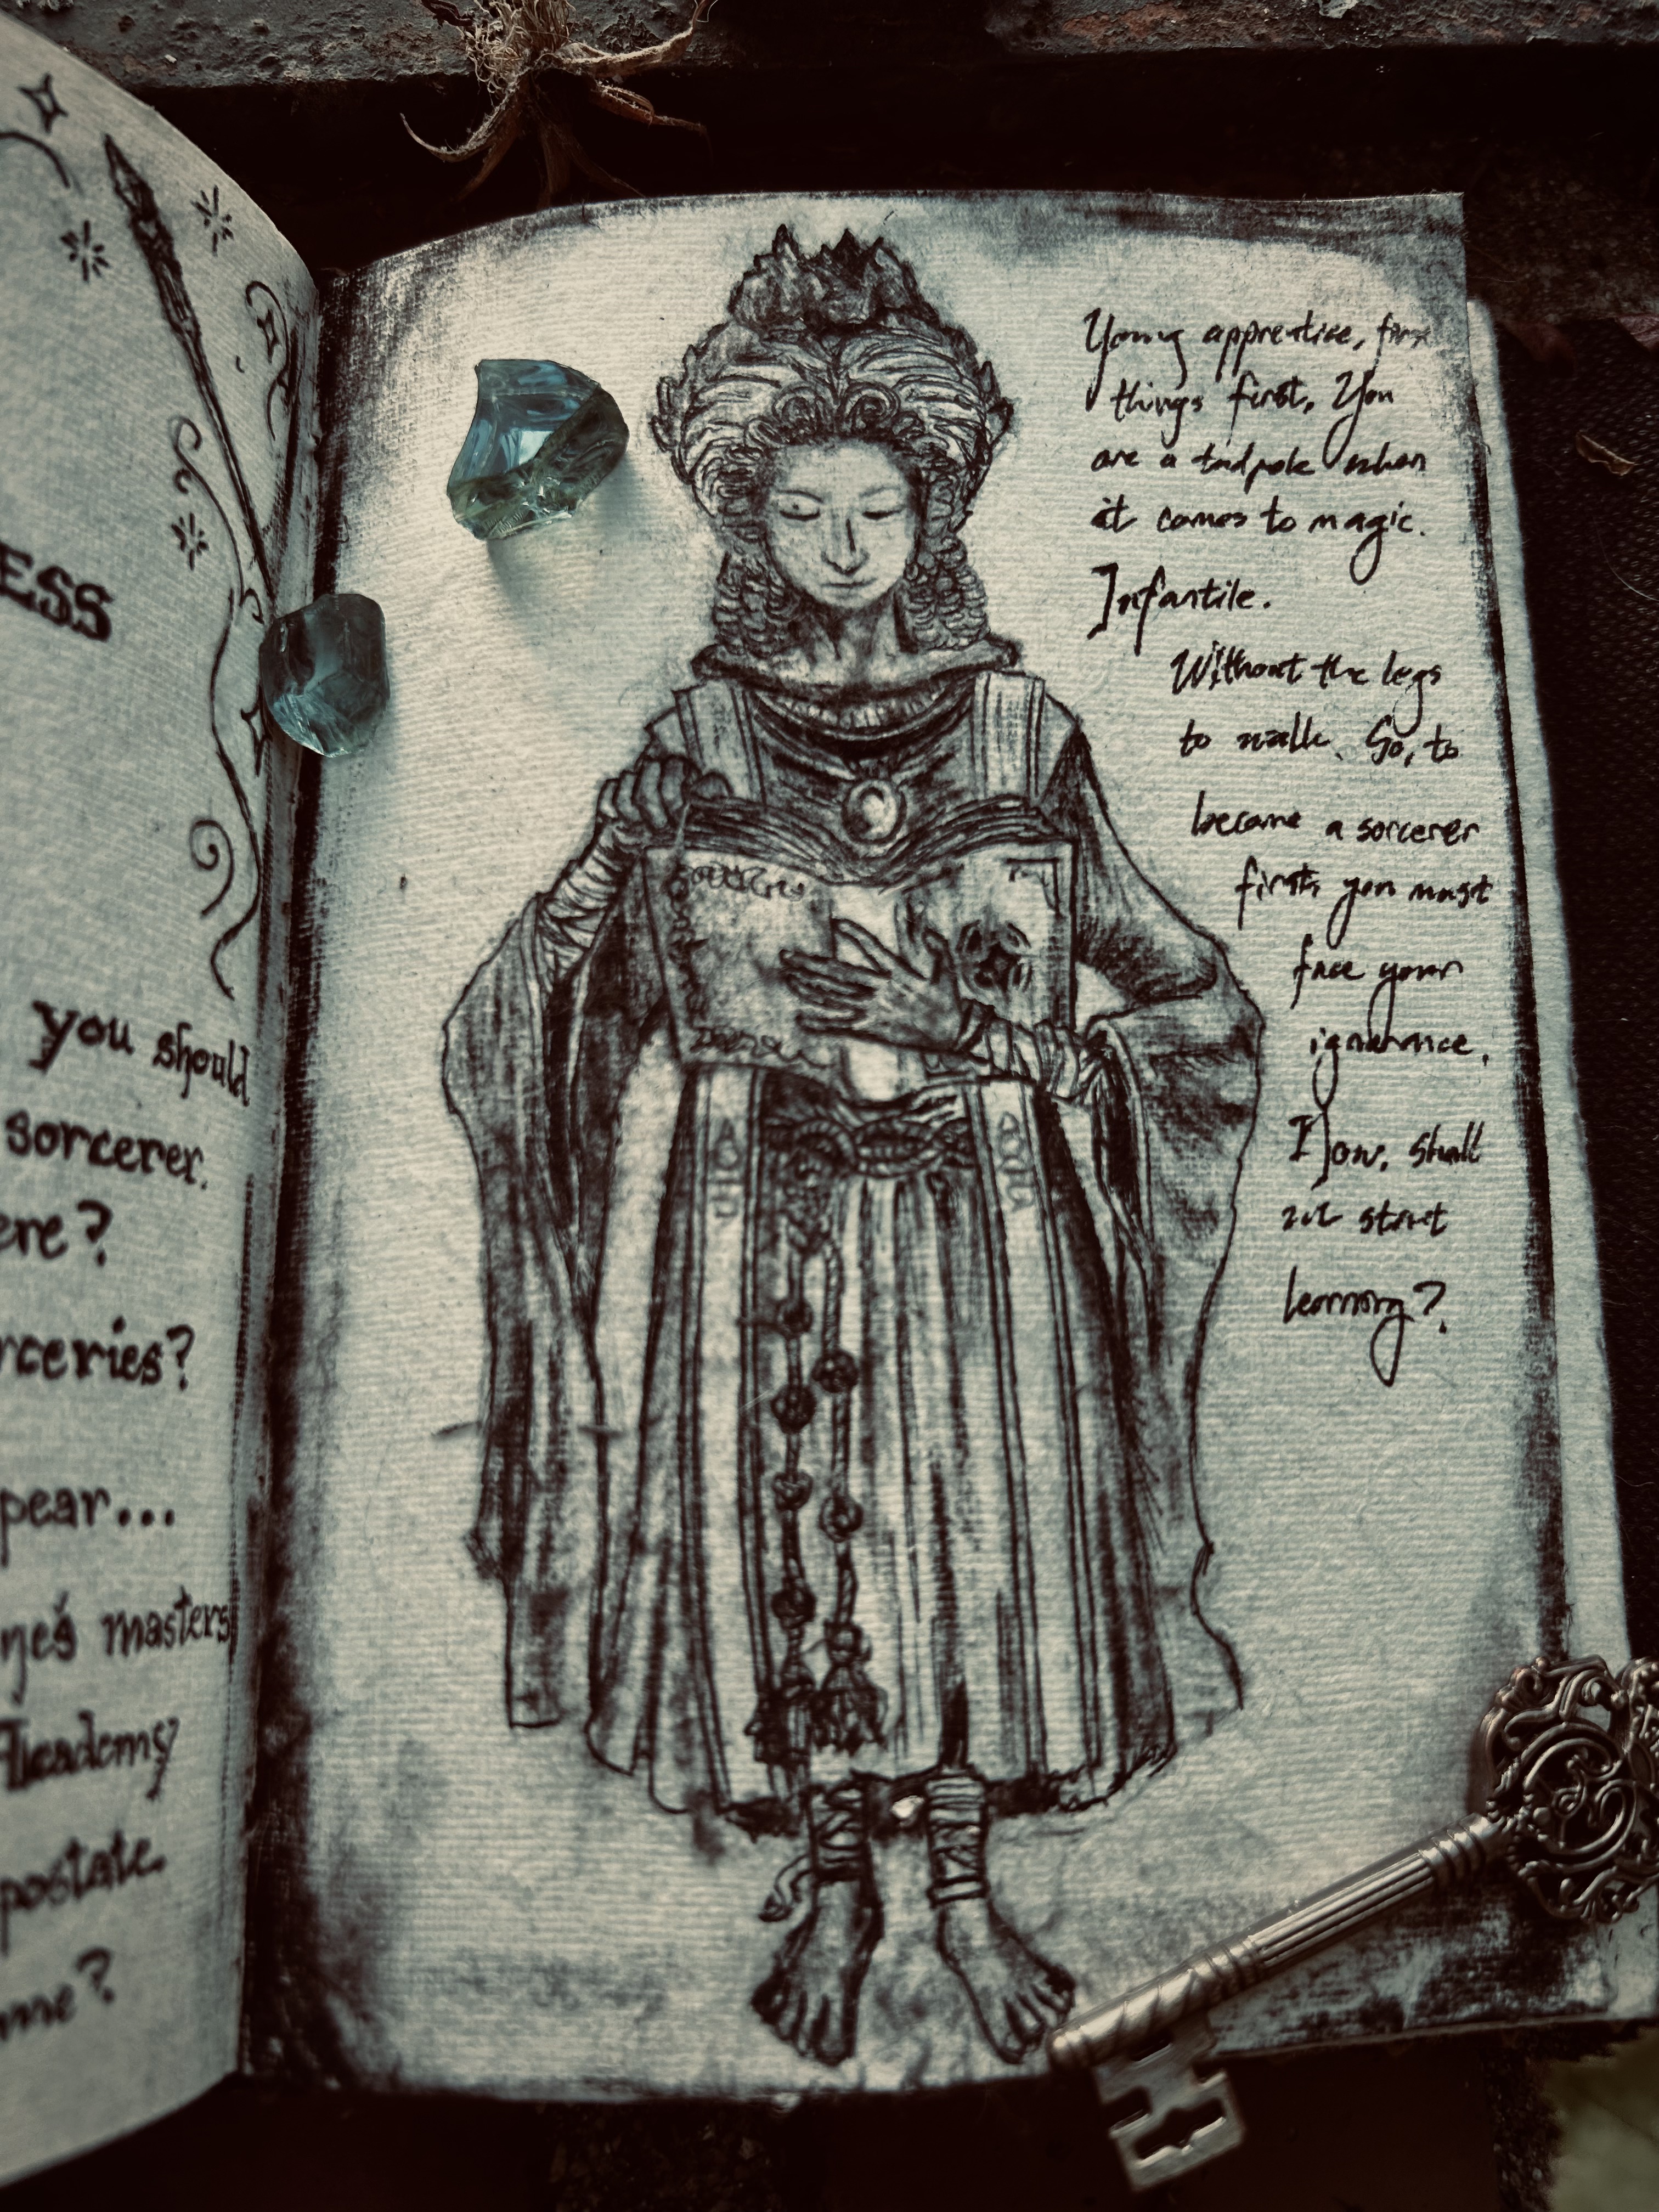 ESS
you should
sorcerer.
ere?
rceries?
pear...
ne's masters
Academy
postate
me?
Young apprentice, first
things first, You
are a tadpole when
it comes to magic.
Infantile.
Without the legs
to walk. So, to
become a sorcerer
first, you must
face your
ignorance.
Now, shall
we start
learning?